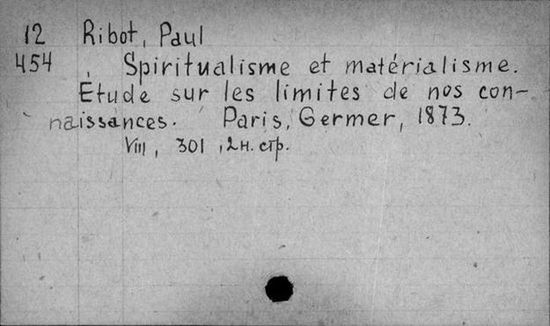 12 Ribot, Paul
454 Spiritualisme et matérialisme.
Étude sur les limites de nos con-
naissances. Paris, Germer, 1873.
VIII, 301, 2 н. стр.